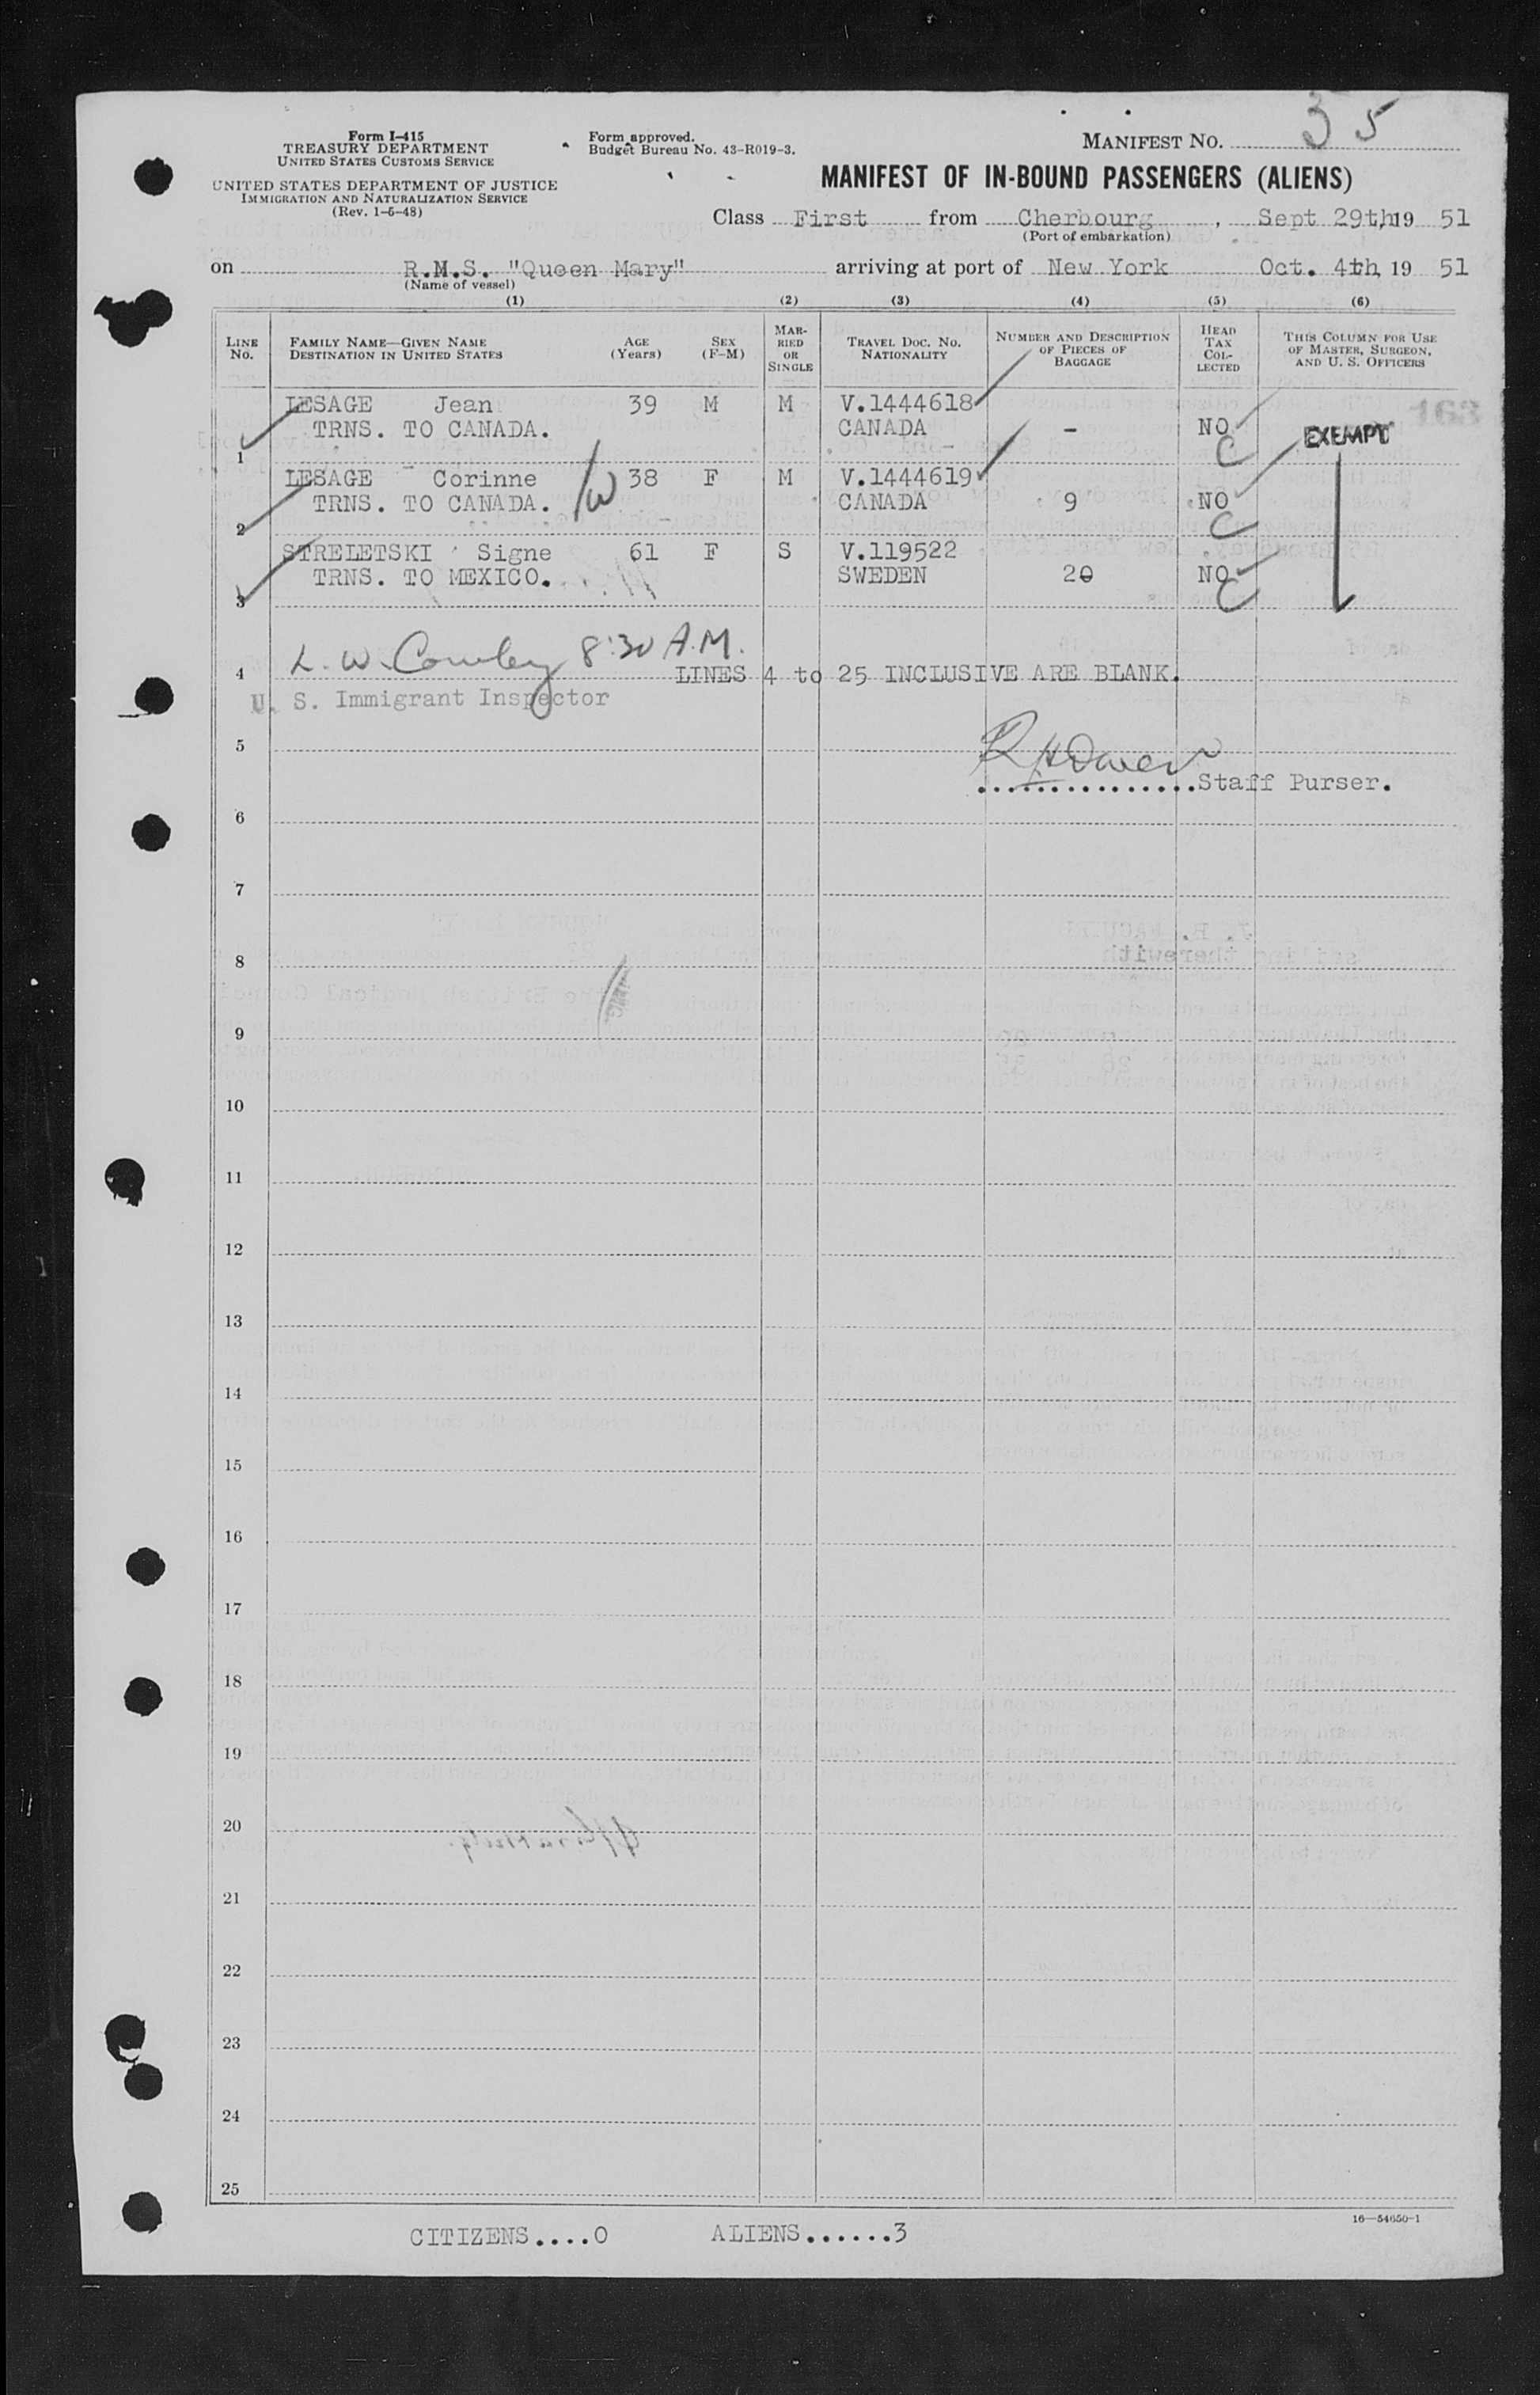 Form I-415
TREASURY DEPARTMENT
UNITED STATES CUSTOMS SERVICE
UNITED STATES DEPARTMENT OF JUSTICE
IMMIGRATION AND NATURALIZATION SERVICE
(Rev. 1-6-48)
Form approved.
Budget Bureau No. 43-R019-3.
MANIFEST No. 35
MANIFEST OF IN-BOUND PASSENGERS (ALIENS)
Class First from Cherbourg, Sept 29th, 19 51
(Port of embarkation)
on R.M.S. "Queen Mary" arriving at port of New York Oct. 4th, 19 51
(Name of vessel)
(1) (2) (3) (4) (5) (6)
LINE No. FAMILY NAME—GIVEN NAME DESTINATION IN UNITED STATES AGE (Years) SEX (F-M) MARRIED OR SINGLE TRAVEL DOC. No. NATIONALITY NUMBER AND DESCRIPTION OF PIECES OF BAGGAGE HEAD TAX COLLECTED THIS COLUMN FOR USE OF MASTER, SURGEON, AND U. S. OFFICERS
163
LESAGE Jean 39 M M V.1444618
1 TRNS. TO CANADA. CANADA - NO C EXEMPT
LESAGE Corinne W 38 F M V.1444619
2 TRNS. TO CANADA. CANADA 9 NO C
STRELETSKI Signe 61 F S V.119522
3 TRNS. TO MEXICO. SWEDEN 20 NO C
L. W. Cowley 8:30 A.M.
4 LINES 4 to 25 INCLUSIVE ARE BLANK.
U. S. Immigrant Inspector
5
...............Staff Purser.
6
7
8
9
10
11
12
13
14
15
16
17
18
19
20
21
22
23
24
25
16—54650-1
CITIZENS....0 ALIENS......3